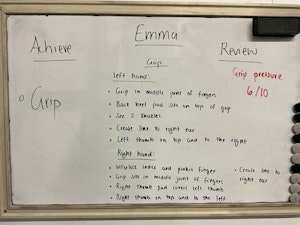 Emma
Achieve
Review
Grip
Grip
Grip pressure
6/10
Left hand:
• Grip in middle joint of fingers
• Back heel pad sits on top of grip
• See 2 knuckles
• Create line to right ear
• Left thumb on top and to the right
Right hand:
• Interlock index and pinkie finger
• Grip sits in middle joint of fingers
• Right thumb pad covers left thumb
• Right thumb on top and to the left
• Create line to
right ear